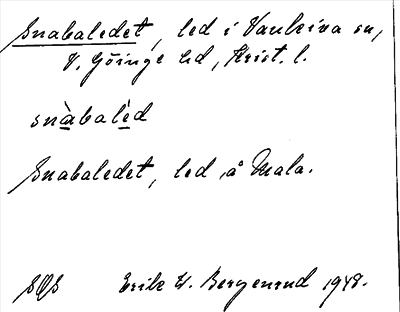 Snabaledet, led i Vankiva sn,
V. Göinge hd, Krist. l.
snàbalèd
Snabaledet, led å Mala.
SOS Erik W. Bergenrud 1948.